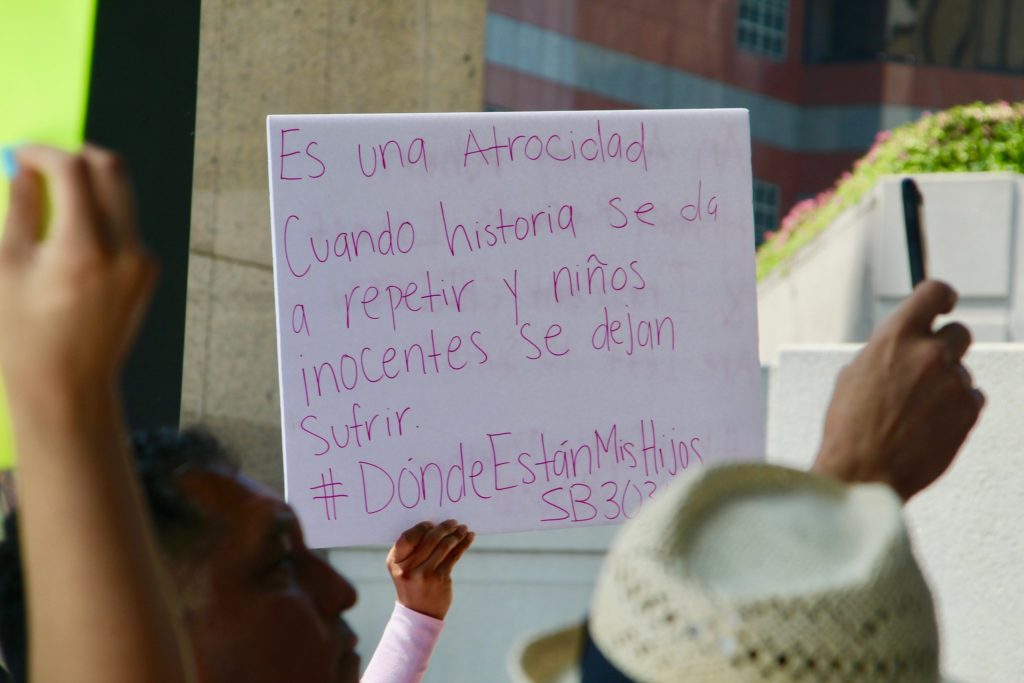 Es una Atrocidad
Cuando historia se da
a repetir y niños
inocentes se dejan
sufrir.
#DóndeEstánMisHijos
SB303